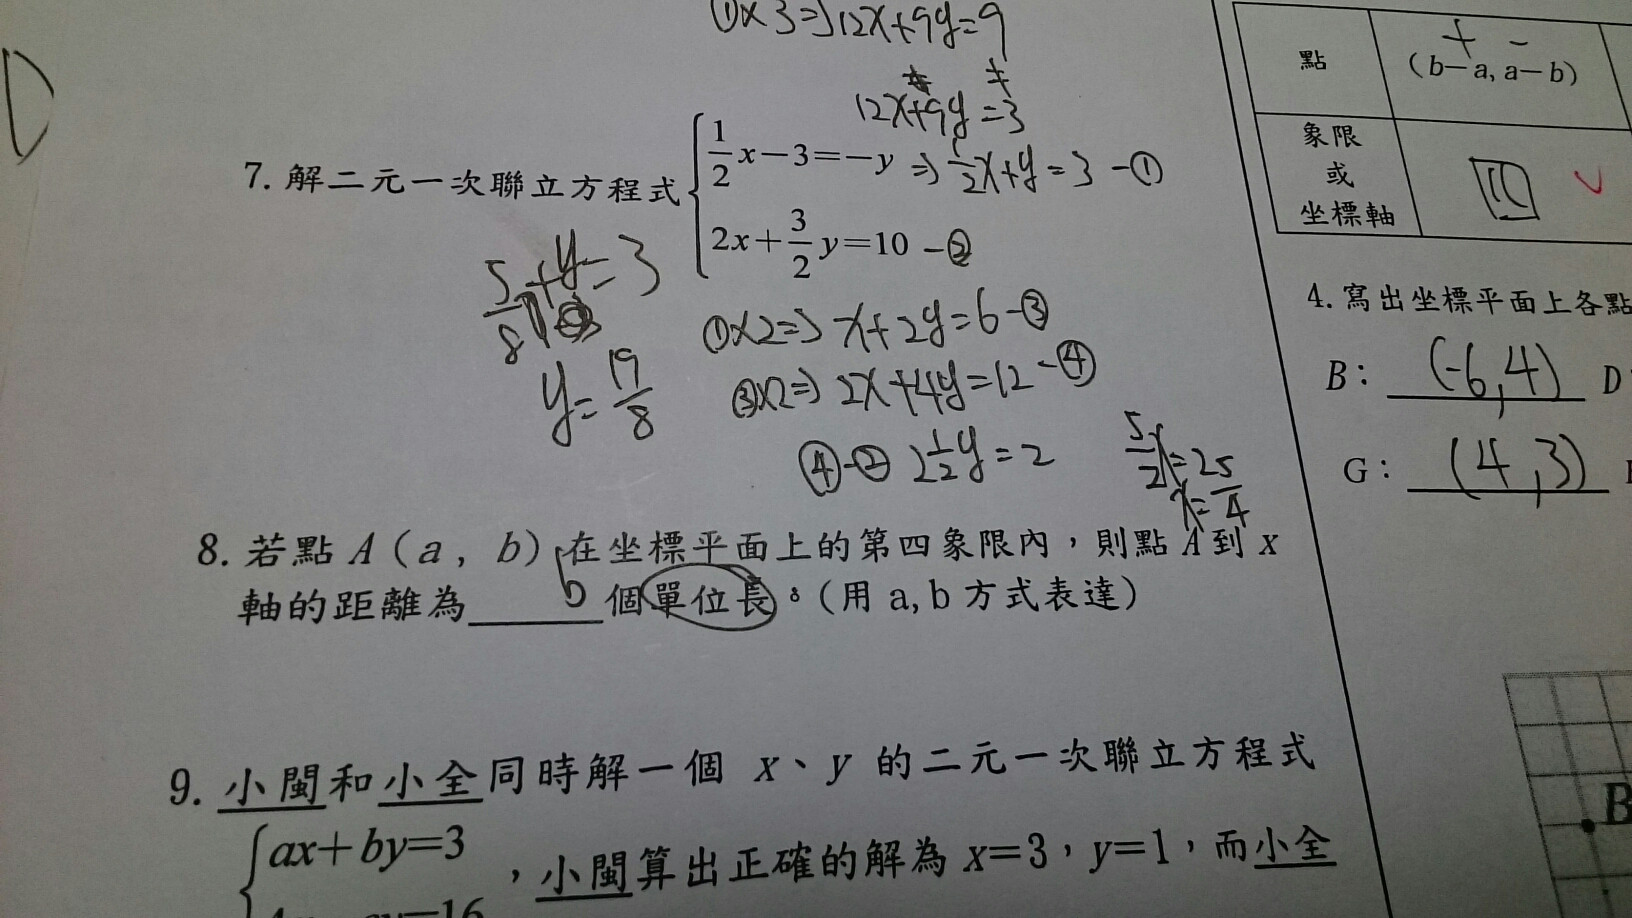 ①×3⇒12x+9y=9
12x+9y=3
7. 解二元一次聯立方程式
1/2x-3=-y ⇒ 1/2x+y=3 -①
2x+3/2y=10 -②
5/8+y=3
y=19/8
①×2⇒ x+2y=6-③
③×2⇒ 2x+4y=12-④
④-② 2 1/2y=2
5/2x=25
x=25/4
8. 若點 A (a , b) 在坐標平面上的第四象限內,則點 A 到 x
軸的距離為 b 個單位長。(用 a, b 方式表達)
9. 小閩和小全同時解一個 x、y 的二元一次聯立方程式
ax+by=3
=16
,小閩算出正確的解為 x=3,y=1,而小全
點
+ -
(b-a, a-b)
象限
或
坐標軸
四
4. 寫出坐標平面上各點
B: (-6,4) D
G: (4,3)
B